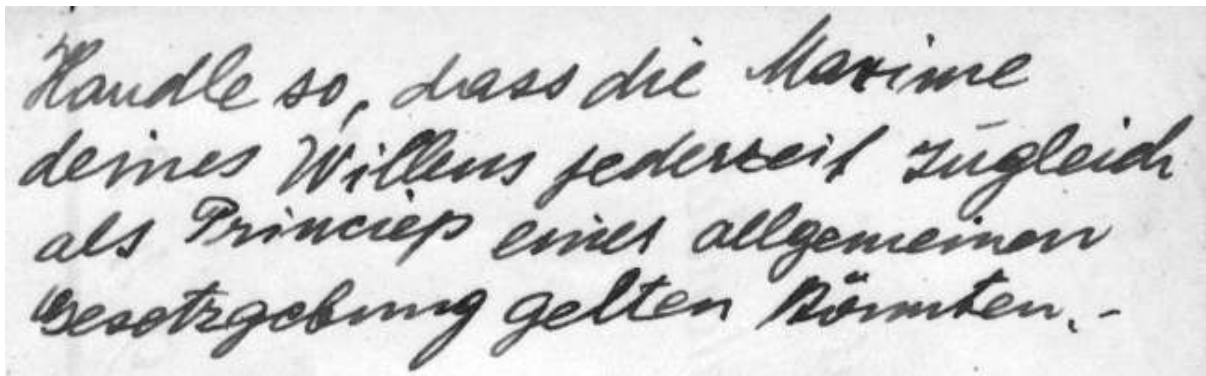 Handle so, dass die Maxime
deines Willens jederzeit zugleich
als Princiep einer allgemeinen
Gesetzgebung gelten könnten.-